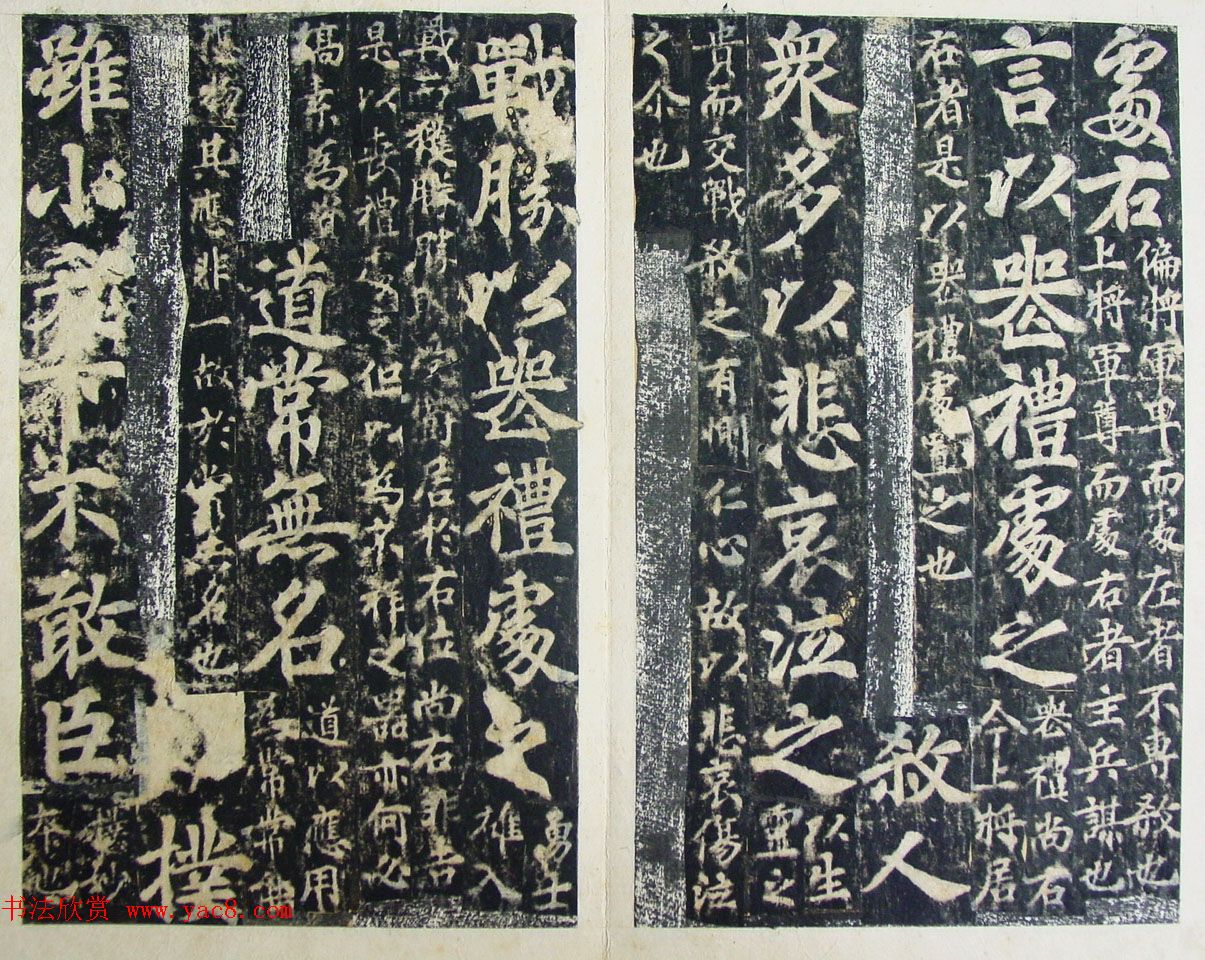 處右
偏將軍卑而處左者不專殺也
上將軍尊而處右者主兵謀也
言以喪禮處之
喪禮尚右
今上將居
在者是以喪禮處置之也
殺人
衆多以悲哀泣之
以生
靈之
貴而交戰殺之有惻仁心故以悲哀傷泣
之尒也
戰勝以喪禮處之
勇士
雄人
戰而獲勝勝則居於右位尚右非吉
是以喪禮處之但以為不祥之器亦何必
縞素為資
道常無名
道以應用
為常常無
應物其應非一故於常無名也
樸
雖小天下不敢臣
樸妙
本也
书法欣赏 www.yac8.com